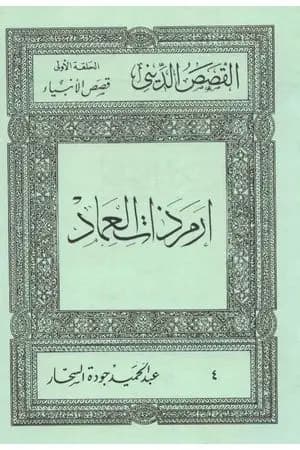 القصص الدينى
الحلقة الأولى
قصص الأنبياء
ارم ذات العماد
٤
عبد الحميد جودة السحار